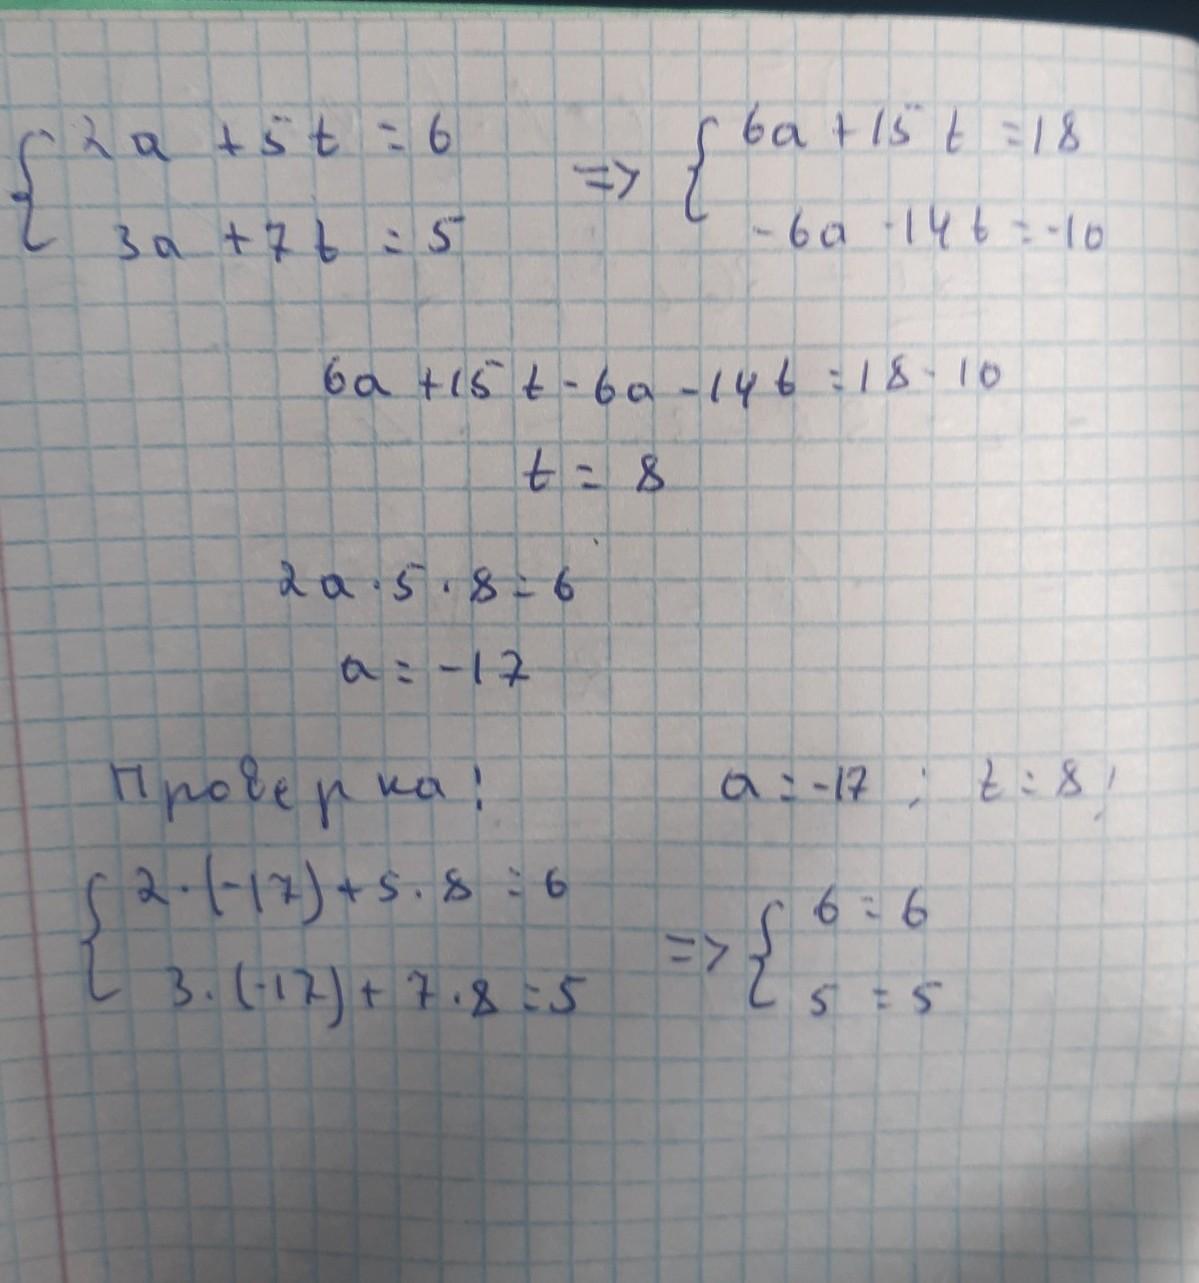 { 2a + 5t = 6 => { 6a + 15t = 18
3a + 7t = 5 -6a - 14t = -10
6a + 15t - 6a - 14t = 18 - 10
t = 8
2a · 5 · 8 = 6
a = -17
Проверка! a = -17 ; t = 8;
{ 2·(-17) + 5·8 = 6 => { 6 = 6
3·(-17) + 7·8 = 5 5 = 5